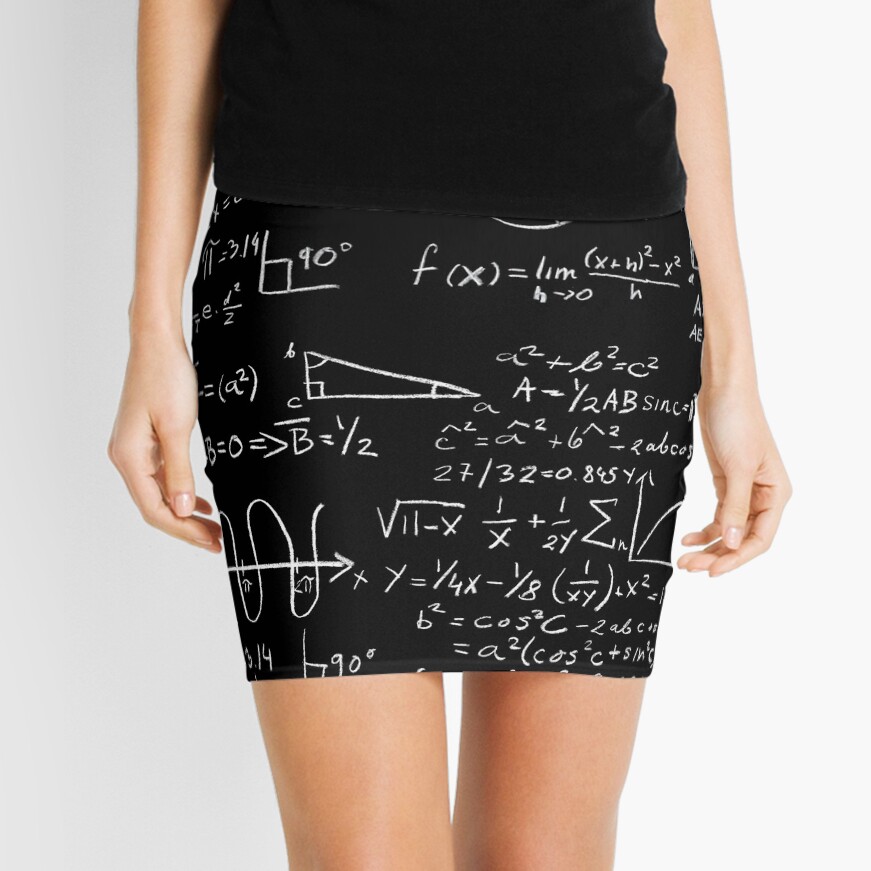 π=3.14
90°
f(x)=lim h→0 (x+h)²-x² / h
=e.d²/2
a²+b²=c²
=(a²)
b
c
a
A=1/2ABsinc=
B=0=>B̅=1/2
c^²=a^²+b^²-2abcos
27/32=0.845
Y
√11-x 1/x+1/2y Σn
π
2π
x
Y=1/4x-1/8(1/xy)+x²=
b²=cos²C-2abc
=a²(cos²c+sin²c
3.14
90°